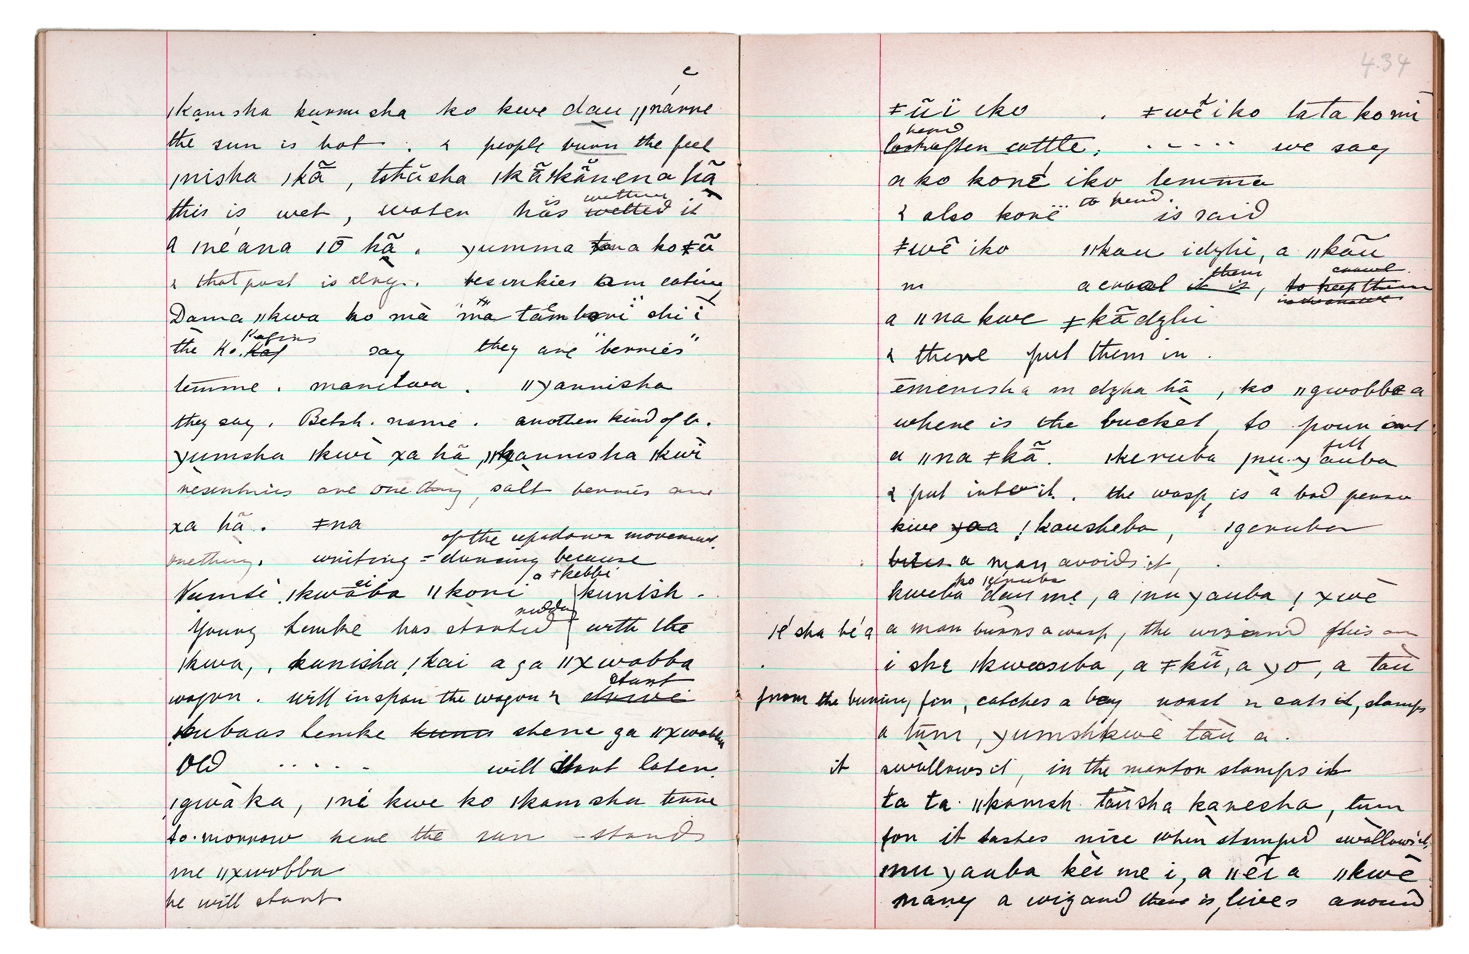 ǀkam sha kurru sha ko kwe dau ǁnárre
the sun is hot . & people burn the feet
ǀnisha ǀkã , tshāsha ǀkã ǀkãnena hã
this is wet , water has wetted it
a ǀnéana ǀō hã . yumma tana ko ǂũ
& that post is dry. resinkies am eating
Dama ǁkwa ko mà "ma tāmbori" shi ì
the Ko. Kafirs say they are "berries"
temme . manitwa . ǁyannisha
they say . Betsh . name . another kind of b.
yumsha ǀkwì xa hã , ǁkannisha ǀkwi
resenkies are one thing, salt berries are
xa hã . ǂna
onething. writing = dancing because
of the upsdown movement.
Numsi ǀkwāba ǁkoni a ǂkebbi kunish .
Young Lemke has started with the
ǀkwa, , kunisha ǃkai a ga ǁxwobba
wagon . will inspan the wagon & start
kubaas Lemke shene ga ǁxwobba
Old ..... will start later.
ǀgwàka, ǀné kwe ko ǀkam sha tenne
to-morrow here the sun - stands
me ǁxwobba
he will start
4.34
ǂũï iko . ǂwẽ iko tata ko mi
herd
lookaften cattle, ..... we say
a ko koné iko temma
& also koné ... to herd. is said
ǂwẽ iko ǁkau idzhi, a ǁkãu
m a corral them, to keep them
a ǁna kwe ǂkã dzhi
& there put them in .
ēmenisha m dzha hã , ko ǁgwobba a
where is the bucket, to pour out
a ǁna ǂkã . ǀkeruba ǀnu yauba
& put into it . the wasp is a bad person
kwe yaa ǃkausheba , ǀgeruba
bites a man avoids it ,
kweba ko ǀgeruba dau me , a ǀnu yauba ǃ xwē
ǀé sha bé a a man burns a wasp, the wizard flies on
i she ǀkwaseba, a ǂkũ, a yo, a tāu
from the burning fire, catches a boy roast n eats it, stamps
a tūm, yumshkwè tàu a .
it swallows it, in the mortar stamps it
ta ta ǁkamsh tāusha kanesha, tum
for it tastes nice when stamped swallows it,
ǀnu yauba kèi me i, a ǁẽi a ǁkwẽ
many a wizard there is, lives around